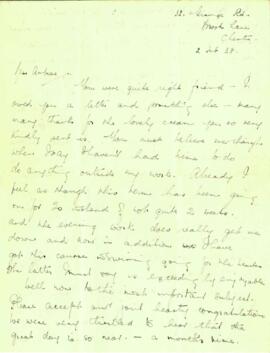 Brook Lane
Chester
2 Feb 38.
You were quite right friend - I
owed you a letter and something else - many
many thanks for the lovely cream you so very
kindly sent us. You must believe me though
when I say I haven't had time to do
do anything outside my work. Already I
feel as though this term has been going
on for 20 instead of not quite 2 weeks.
and the evening work does really get me
down and now in addition we have
got this canvas going for the
the latter I must say is exceedingly enjoyable
Well now to the most important subject.
Please accept and your hearty congratulations
We were very thrilled to hear that the
great day is so near - a months time.